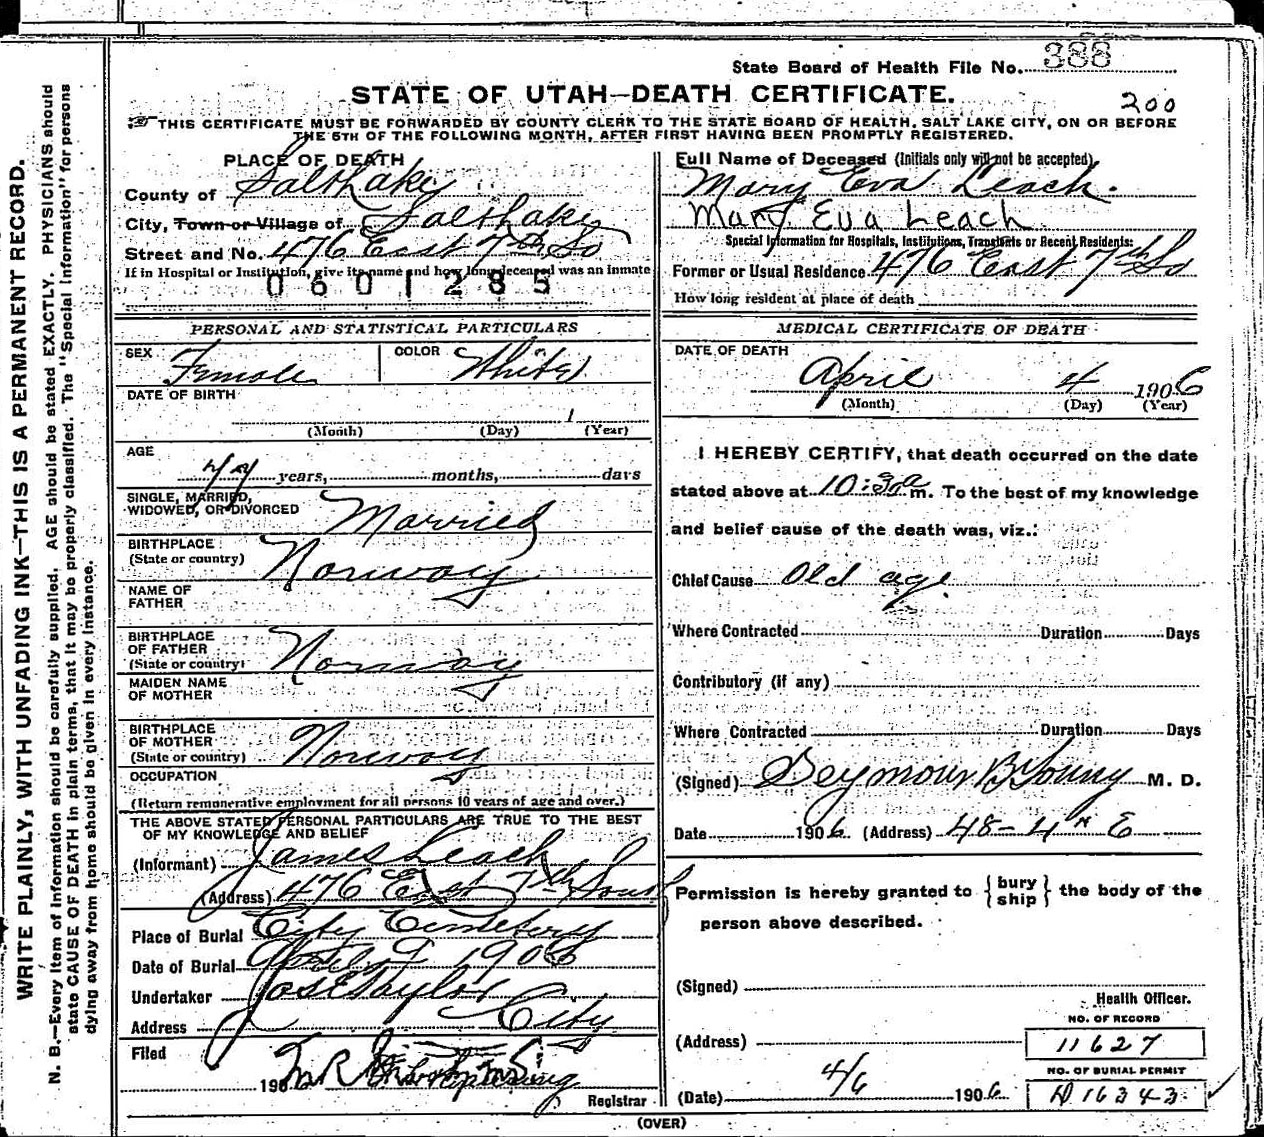 State Board of Health File No. 388
STATE OF UTAH—DEATH CERTIFICATE.
200
THIS CERTIFICATE MUST BE FORWARDED BY COUNTY CLERK TO THE STATE BOARD OF HEALTH, SALT LAKE CITY, ON OR BEFORE
THE 5TH OF THE FOLLOWING MONTH, AFTER FIRST HAVING BEEN PROMPTLY REGISTERED.
PLACE OF DEATH
County of Salt Lake
City, Town or Village of Salt Lake
Street and No. 476 East 7th So
If in Hospital or Institution, give its name and how long deceased was an inmate
0601285
Full Name of Deceased (Initials only will not be accepted)
Mary Eva Leach.
Mary Eva Leach
Special Information for Hospitals, Institutions, Transients or Recent Residents:
Former or Usual Residence 476 East 7th So
How long resident at place of death
PERSONAL AND STATISTICAL PARTICULARS
SEX Female COLOR White
DATE OF BIRTH
1
(Month) (Day) (Year)
AGE
years, months, days
SINGLE, MARRIED,
WIDOWED, OR DIVORCED Married
BIRTHPLACE
(State or country) Norway
NAME OF
FATHER
BIRTHPLACE
OF FATHER
(State or country) Norway
MAIDEN NAME
OF MOTHER
BIRTHPLACE
OF MOTHER
(State or country) Norway
OCCUPATION
(Return remunerative employment for all persons 10 years of age and over.)
THE ABOVE STATED PERSONAL PARTICULARS ARE TRUE TO THE BEST
OF MY KNOWLEDGE AND BELIEF
(Informant) James Leach
(Address) 476 East 7th South
Place of Burial City Cemetery
Date of Burial April 9 1906
Undertaker Jos E Taylor
Address City
Filed
190
Registrar
MEDICAL CERTIFICATE OF DEATH
DATE OF DEATH
April 4 1906
(Month) (Day) (Year)
I HEREBY CERTIFY, that death occurred on the date
stated above at 10:30 a m. To the best of my knowledge
and belief cause of the death was, viz.:
Chief Cause Old age
Where Contracted Duration Days
Contributory (if any)
Where Contracted Duration Days
(Signed) Seymour B Young M. D.
Date 1906 (Address) 48-4th E
Permission is hereby granted to {bury ship} the body of the
person above described.
(Signed)
Health Officer.
NO. OF RECORD
(Address) 11627
NO. OF BURIAL PERMIT
(Date) 4/6 1906 16343
(OVER)
WRITE PLAINLY, WITH UNFADING INK—THIS IS A PERMANENT RECORD.
N. B.—Every item of information should be carefully supplied. AGE should be stated EXACTLY. PHYSICIANS should
state CAUSE OF DEATH in plain terms, that it may be properly classified. The "Special Information" for persons
dying away from home should be given in every instance.